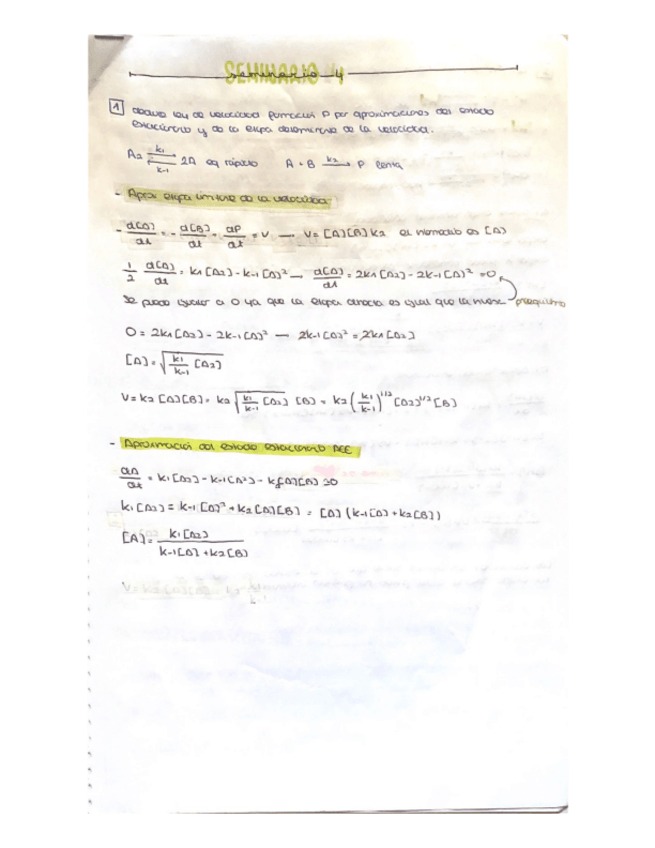 SEMINARIO 4
1 deduce ley de velocidad formación P por aproximaciones del estado
estacionario y de la etapa determinante de la velocidad.
A2 ⇌ 2A eq rápido A + B →k2 P lenta
k1
k-1
- Aprox etapa limitante de la velocidad
- d[A]/dt = - d[B]/dt = dP/dt = v → v = [A][B] k2 el intermedio es [A]
1/2 d[A]/dt = k1[A2] - k-1[A]² → d[A]/dt = 2k1[A2] - 2k-1[A]² = 0
Se puede igualar a 0 ya que la etapa directa es igual que la inversa preequilibrio
0 = 2k1[A2] - 2k-1[A]² — 2k-1[A]² = 2k1[A2]
[A] = √(k1/k-1 [A2])
V = k2[A][B] = k2 √(k1/k-1 [A2]) [B] = k2 (k1/k-1)^1/2 [A2]^1/2 [B]
- Aproximación del estado estacionario AEE
dA/dt = k1[A2] - k-1[A²] - k2[A][B] = 0
k1[A2] = k-1[A]² + k2[A][B] = [A] (k-1[A] + k2[B])
[A] = k1[A2] / k-1[A] + k2[B]